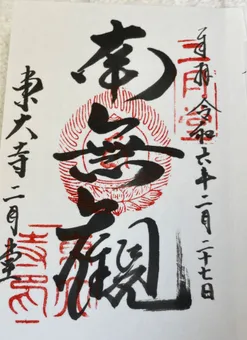 奉拝 令和六年一月二十七日
二月堂
南無観
東大寺 二月堂